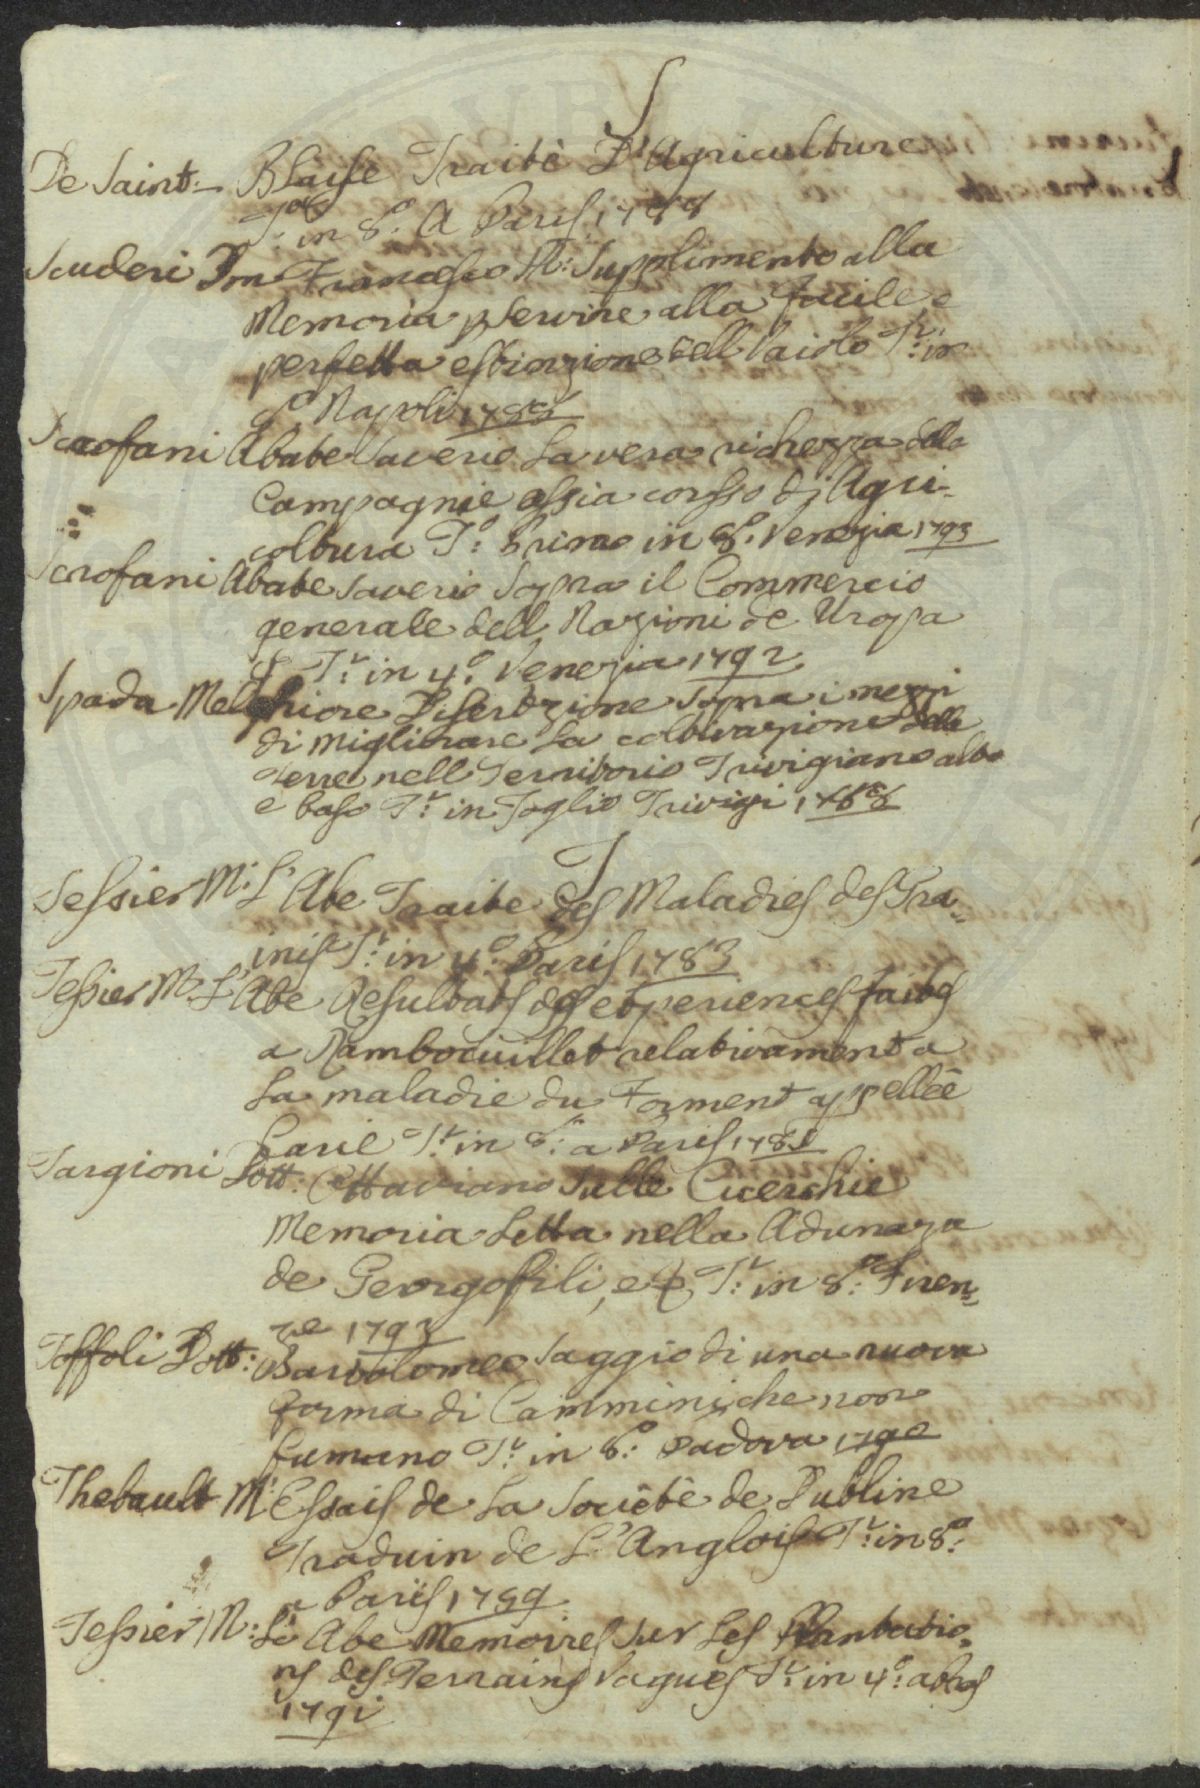 S
De Saint- Blaise Traitè D'Agriculture
in 8.º A Paris 1788
Scuderi Dn Francesco M: Supplimento alla
Memoria p servire alla facile e
perfetta estinzione dell Vaiolo T.º: in
8º Napoli 1789
Scrofani Abate Saverio La vera richezza delle
Campagnie ossia corsso di Agri-
coltura T.º: Primo in 8.º Venezia 1793
Scrofani Abate Saverio Sopra il Commercio
generale dell Nazioni de Uropa
T.º: in 4.º Venezia 1792
Spada Melchiore Disertzione sopra i mezzi
di migliorare la coltivazione delle
Terre nell Territorio Trivigiano alto
e baso T.º: in Foglio Trivigi 1788
T
Tessier M: L'Abe Traite des Maladies des Gra=
inis T.º: in 4.º Paris 1783
Tessier M: L'Abe Resultats des etperiences faites
a Rambouuillet relativament a
La maladie du Forment appelleê
Carie T.º: in 8.º: a Paris 1785
Targioni Dott: Ottaviano Sulle Cicerchie
Memoria Letta nella Adunaza
de Georgofili, e T.º: in 8.º: Firen=
ze 1793
Toffoli Dott: Bartolomeo Saggio di una nuova
forma di Cammini che non
fumano T.º: in 8.º: Padova 1790
Thebault M: Essais de La Sociêtè de Dubline
Traduin de L'Anglois T.º: in 8.º:
a Pariis 1759
Tessier M: L' Abe Memoires sur Les Plantatio=
ns des Terrains Vagues T.º: in 4.º:
1791